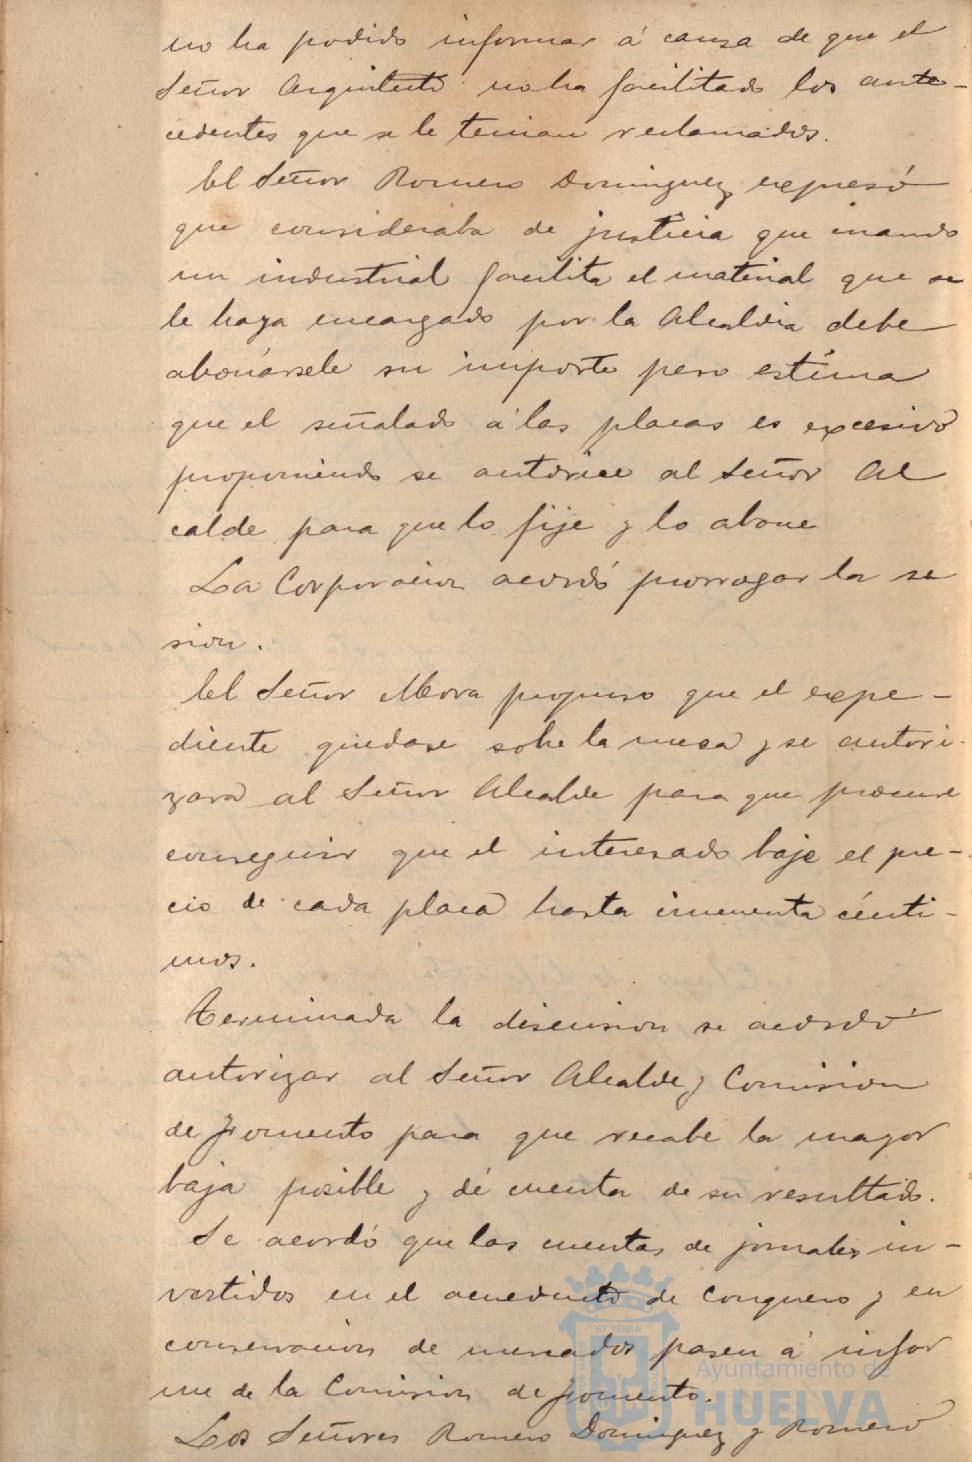 no ha podido informar á causa de que el
Señor Arquitecto no ha facilitado los ante-
cedentes que se le tenian reclamados.
El Señor Romero Dominguez expresó
que consideraba de justicia que cuando
un industrial facilita el material que se
le haya encargado por la Alcaldia debe
abonársele su importe pero estima
que el señalado á las placas es excesivo
proponiendo se autorice al Señor Al
calde para que lo fije y lo abone
La Corporacion acordó prorrogar la se
sion.
El Señor Mora propuso que el expe-
diente quedase sobre la mesa y se autori-
zara al Señor Alcalde para que procure
conseguir que el interesado baje el pre-
cio de cada placa hasta cincuenta cénti-
mos.
Terminada la discusion se acordó
autorizar al Señor Alcalde y Comision
de Fomento para que recabe la mayor
baja posible y dé cuenta de su resultado.
Se acordó que las cuentas de jornales in-
vertidos en el acueducto de Conquero y en
conservacion de mercados pasen á infor
me de la Comision de Fomento.
Los Señores Romero Dominguez y Romero
Ayuntamiento de
HUELVA